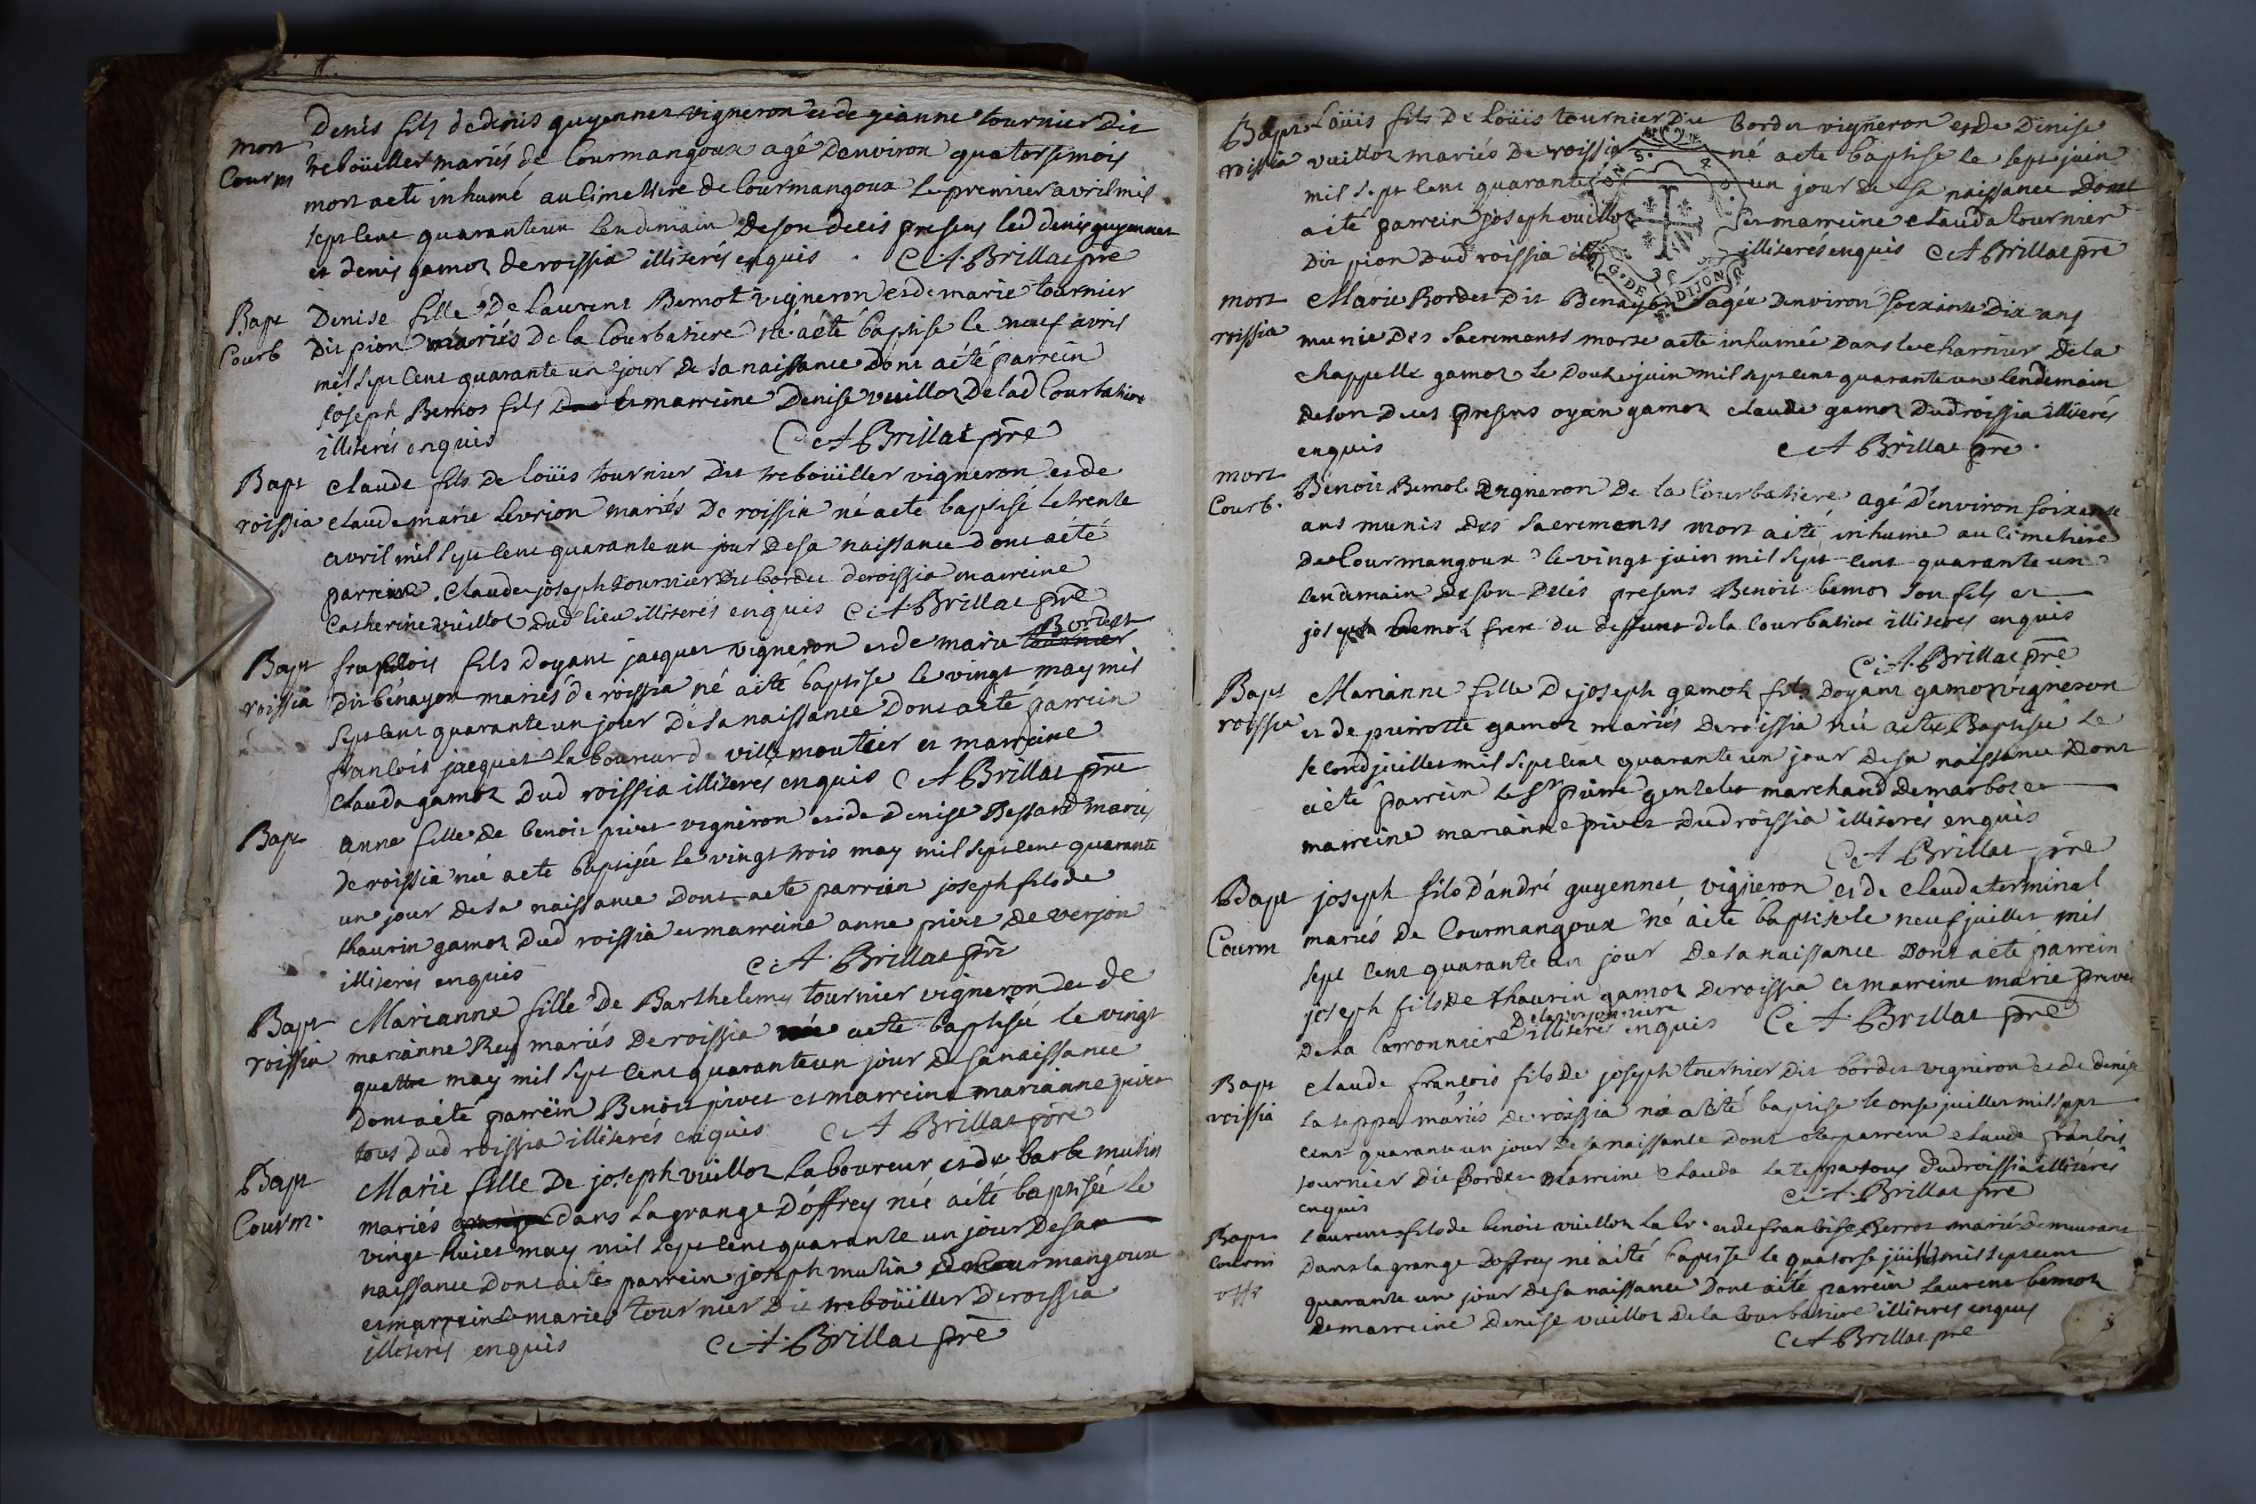 Denis fils de denis guyennet vigneron et de jeanne tournier dit
mort
trebouiller mariés de Courmangoux agé denviron quatorse mois
Courm
mort a eté inhumé au cimettiere de Courmangoux le premier avril mil
sept cent quarante un lendemain de son decés presens led denis guyennet
et denis gamoz de roissia illiterés enquis . C A Brillat prē
Bapt
Denise fille de Laurent Bemoz vigneron et de marie tournier
Courb
dit pion mariés de la Courbatiere né a eté baptisé le neuf avril
mil sept cent quarante un jour de sa naissance dont a eté parrein
joseph Bemoz fils et marreine Denise vuilloz de lad Courbatiere
illiterés enquis C A Brillat prē
Bapt
claude fils de loüis tournier dit trebouiller vigneron et de
roissia
claude marie Levrion mariés de roissia né a eté baptisé le trente
avril mil sept cent quarante un jour de sa naissance dont a eté
parrein . claude joseph tournier dit bordet de roissia marreine
Catherine vuilloz dud lieu illiterés enquis C A Brillat prē
Bordet
Bapt
françois fils doyant jacquet vigneron et de marie tournier
roissia
dit bénayon mariés de roissia né a eté baptisé le vingt may mil
sept cent quarante un jour de sa naissance dont a eté parrein
françois jacquet laboureur d villemoutier et marreine
clauda gamoz dud roissia illiterés enquis C A Brillat prē
Bapt
anne fille de benoit pivet vigneron et de denise Bessard mariés
de roissia né a eté baptisée le vingt trois may mil sept cent quarante
un jour de sa naissance dont a eté parrein joseph fils de
thaurin gamoz dud roissia et marreine anne pivet de verjon
illiterés enquis C A Brillat prē
Bapt
Marianne fille de Barthelemy tournier vigneron et de
roissia
marianne Rey mariés de roissia née a eté baptisée le vingt
quattre may mil sept cent quarante un jour de sa naissance
dont a eté parrein Benoit pivet et marreine marianne pivet
tous dud roissia illiterés enquis C A Brillat prē
Bapt
Marie fille de joseph vuilloz laboureur et de barbe mutin
Courm.
mariés dans la grange d'offrey née a eté baptisée le
vingt huict may mil sept cent quarante un jour de sa
naissance dont a eté parrein joseph mutin de Courmangoux
et marreine marie tournier dit trebouiller de roissia
illiterés enquis C A Brillat prē
Bapt
Loüis fils de Loüis tournier dit bordet vigneron et de Denise
roissia
vuilloz mariés de roissia né a eté baptisé le sept juin
mil sept cent quarante un jour de sa naissance dont
a eté parrein joseph vuilloz et marreine clauda tournier
dit pion dud roissia illiterés enquis C A Brillat prē
G. DE DIJON
mort
Marie Bordet dit Benayon agée denviron soixante dix ans
roissia
munie des sacremants morte a eté inhumée dans le charnier de la
chappelle gamoz le douze juin mil sept cent quarante un lendemain
de son decés presens oyan gamoz claude gamoz dud roissia illiterés
enquis C A Brillat prē.
mort
Benoit Bemoz vigneron de la Courbatiere agé d'environ soixante
Courb.
ans munis des sacrements mort a eté inhumé au cimetiere
de Courmangoux le vingt juin mil sept cent quarante un
lendemain de son decés presens Benoit bemoz son fils et
joseph bemoz frere du deffunt de la Courbatiere illiterés enquis
C A Brillat prē
Bapt
Marianne fille de joseph gamoz fils doyant gamoz vigneron
roissia
et de pierrotte gamoz mariés de roissia née a eté Baptisée le
second juillet mil sept cent quarante un jour de sa naissance dont
a eté parrein le sr pierre marchand de marboz et
marreine marianne pivet dud roissia illiterés enquis
C A Brillat prē
Bapt
joseph fils d'andré guyennet vigneron et de clauda terminal
Courm
mariés de Courmangoux né a eté baptisé le neuf juillet mil
sept cent quarante un jour de sa naissance dont a eté parrein
joseph fils de thaurin gamoz de roissia et marreine marie pivet
de la illiterés enquis C A Brillat prē
Bapt
claude françois fils de joseph tournier dit bordet vigneron et de denise
roissia
lateppa mariés de roissia né a eté baptisé le onse juillet mil sept
cent quarante un jour de sa naissance dont a eté parrein claude françois
tournier dit Bordet marreine clauda lateppa tous dud roissia illiterés
enquis C A Brillat prē
Bapt
Laurent fils de benoit vuilloz lab. et de françoise Perret mariés demeurant
Courm
dans la grange doffrey né a eté baptisé le quatorse juillet mil sept cent
offr
quarante un jour de sa naissance dont a eté parrein Laurent bemoz
et marreine denise vuilloz de la Courbatiere illiterés enquis
C A Brillat prē